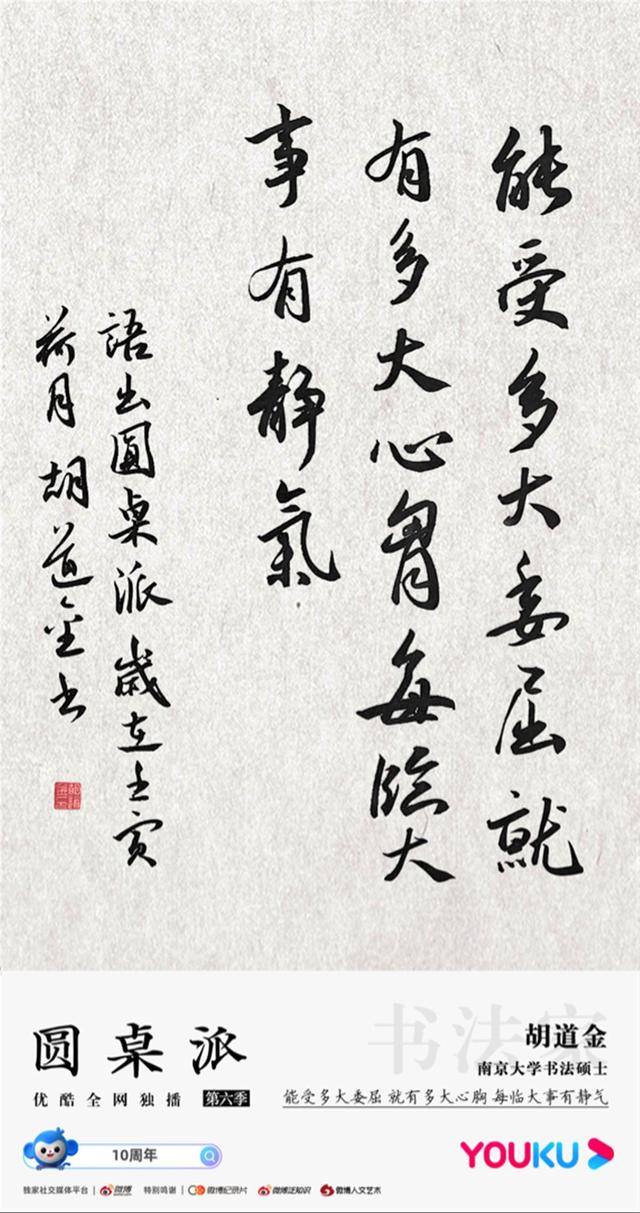 能受多大委屈就
有多大心胷每臨大
事有靜氣
語出圓桌派歲在壬寅
荷月胡道金书
圆桌派
优酷全网独播 第六季
10周年
书法家
胡道金
南京大学书法硕士
能受多大委屈 就有多大心胸 每临大事有静气
YOUKU
独家社交媒体平台 | 微博 特别鸣谢 | 微博纪录片 微博泛知识 微博人文艺术